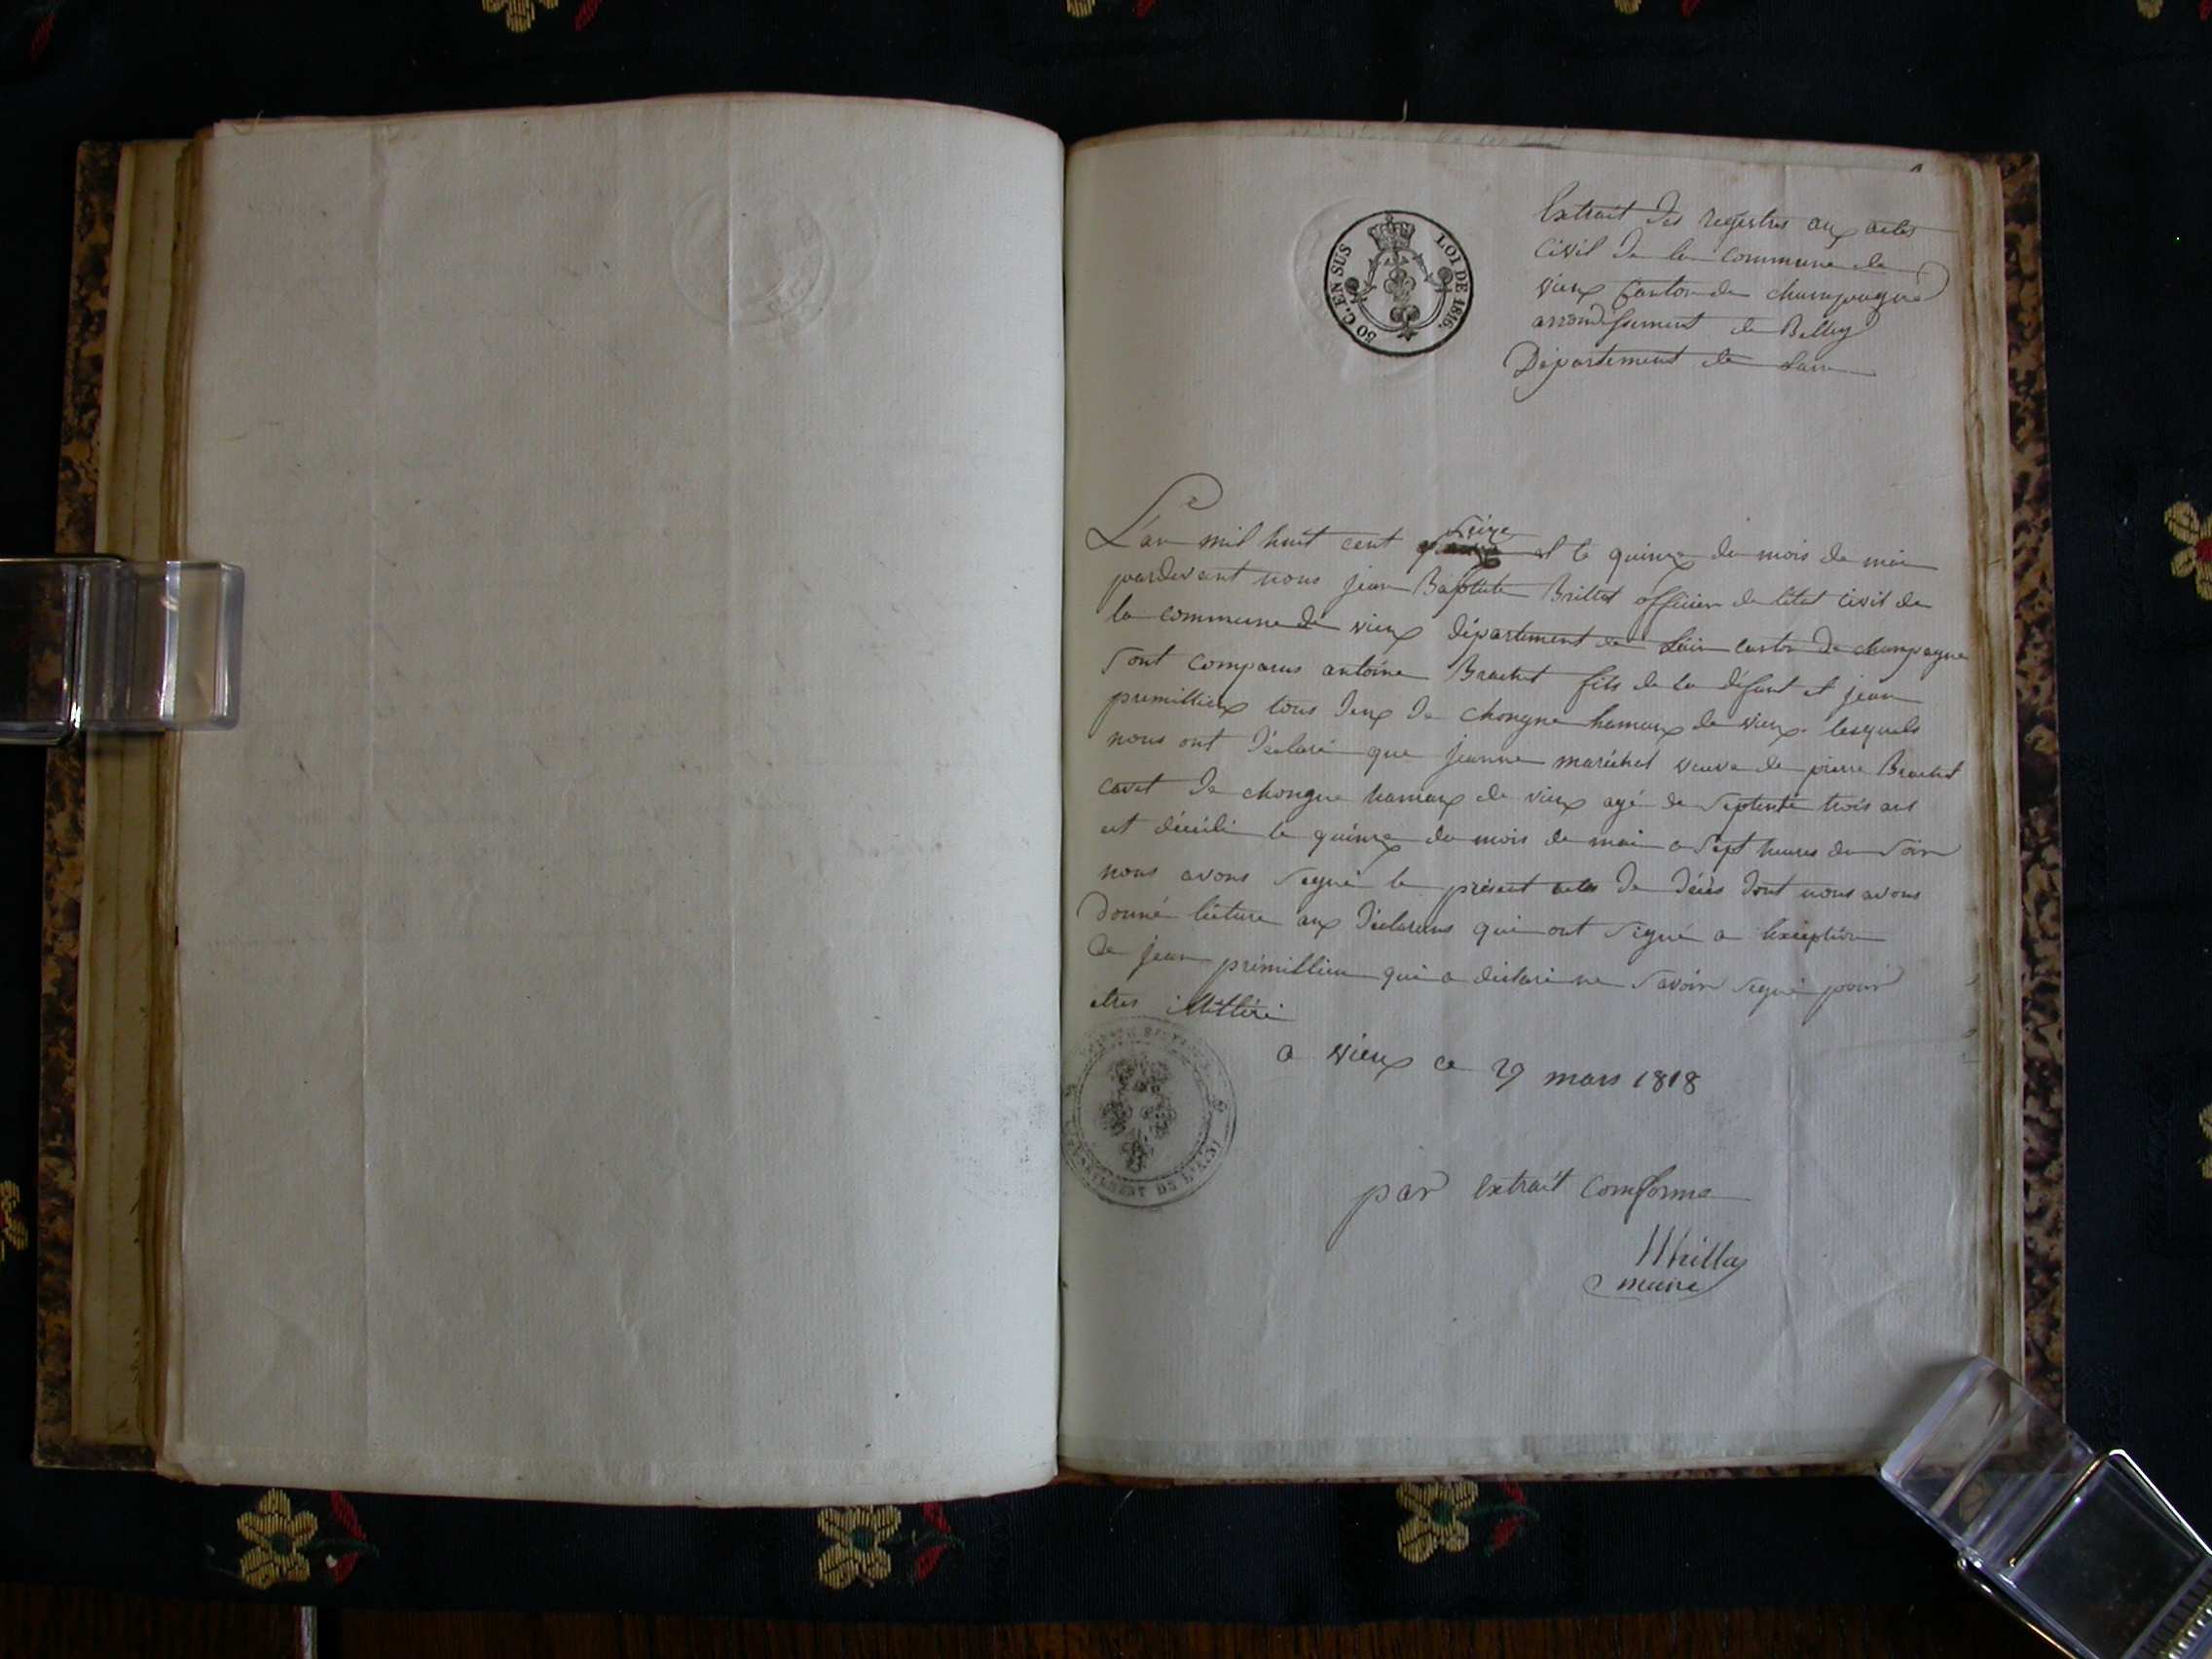 50 C. EN SUS
LOI DE 1816.
Extrait des registres aux actes
civil de la commune de
vieux Canton de champagne
arrondissement de Belley
Département de Lain
L'an mil huit cent Seize et le quinze du mois de mai
pardevant nous jean Baptiste Brillat officier de létat civil de
la commune de vieux département de Láin canton de champagne
Sont comparus antoine Brachet fils de la défunt et jean
premillieux tous deux de chongne hamaux de vieux. lesquels
nous ont déclaré que jeanne maréchal veuve de pierre Brachet
cavet de chongne hamaux de vieux agé de Septente trois ans
est décédé le quinze du mois de mai a Sept heures du Soir
nous avons Segné le présent actes de décès dont nous avons
donné lécture aux déclarens qui ont Signé a lexception
de jean prémillieu qui a déclaré ne Savoir Segné pour
etres illittéré
a vieux ce 29 mars 1818
DEPARTEMENT DE L'AIN
par extrait comforme
maire